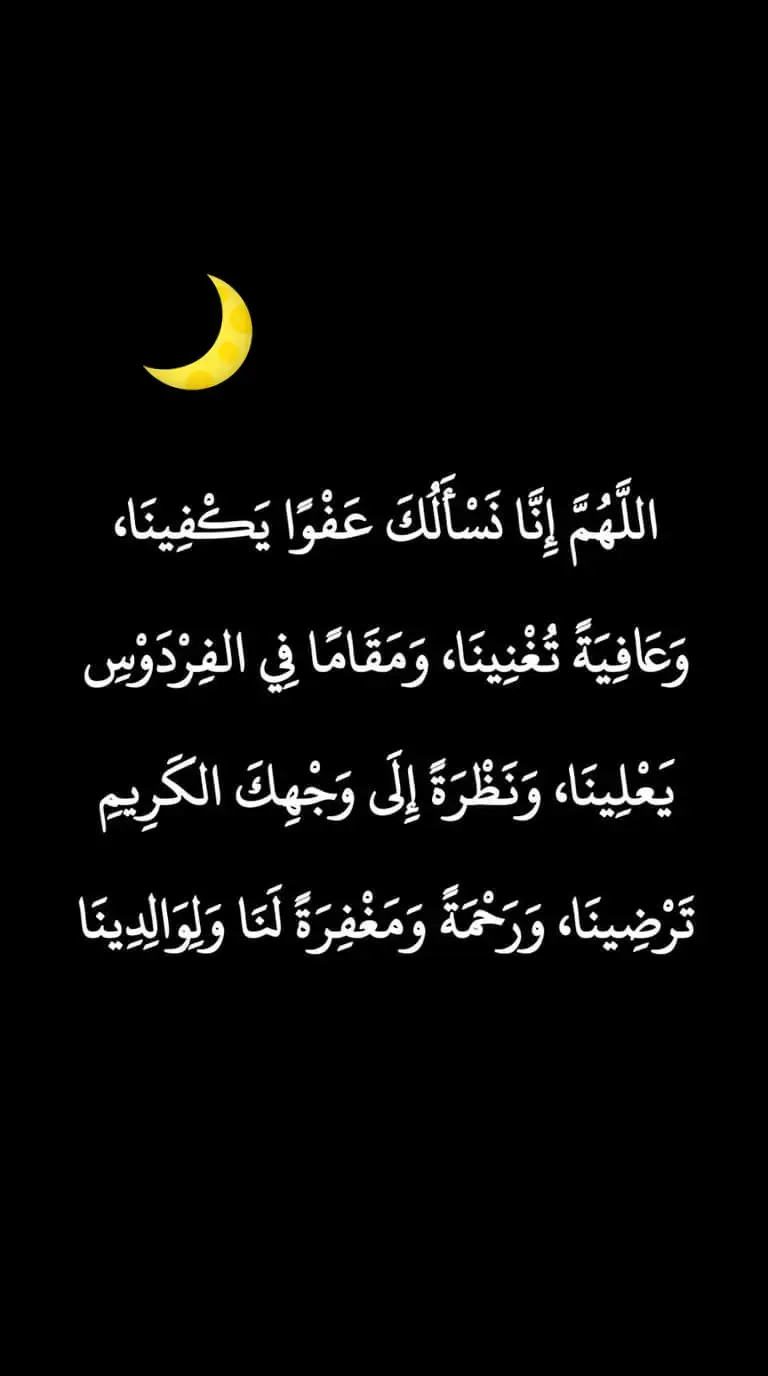 اللَّهُمَّ إِنَّا نَسْأَلُكَ عَفْوًا يَكْفِينَا،
وَعَافِيَةً تُغْنِينَا، وَمَقَامًا فِي الفِرْدَوْسِ
يَعْلِينَا، وَنَظْرَةً إِلَى وَجْهِكَ الكَرِيمِ
تَرْضِينَا، وَرَحْمَةً وَمَغْفِرَةً لَنَا وَلِوَالِدِينَا